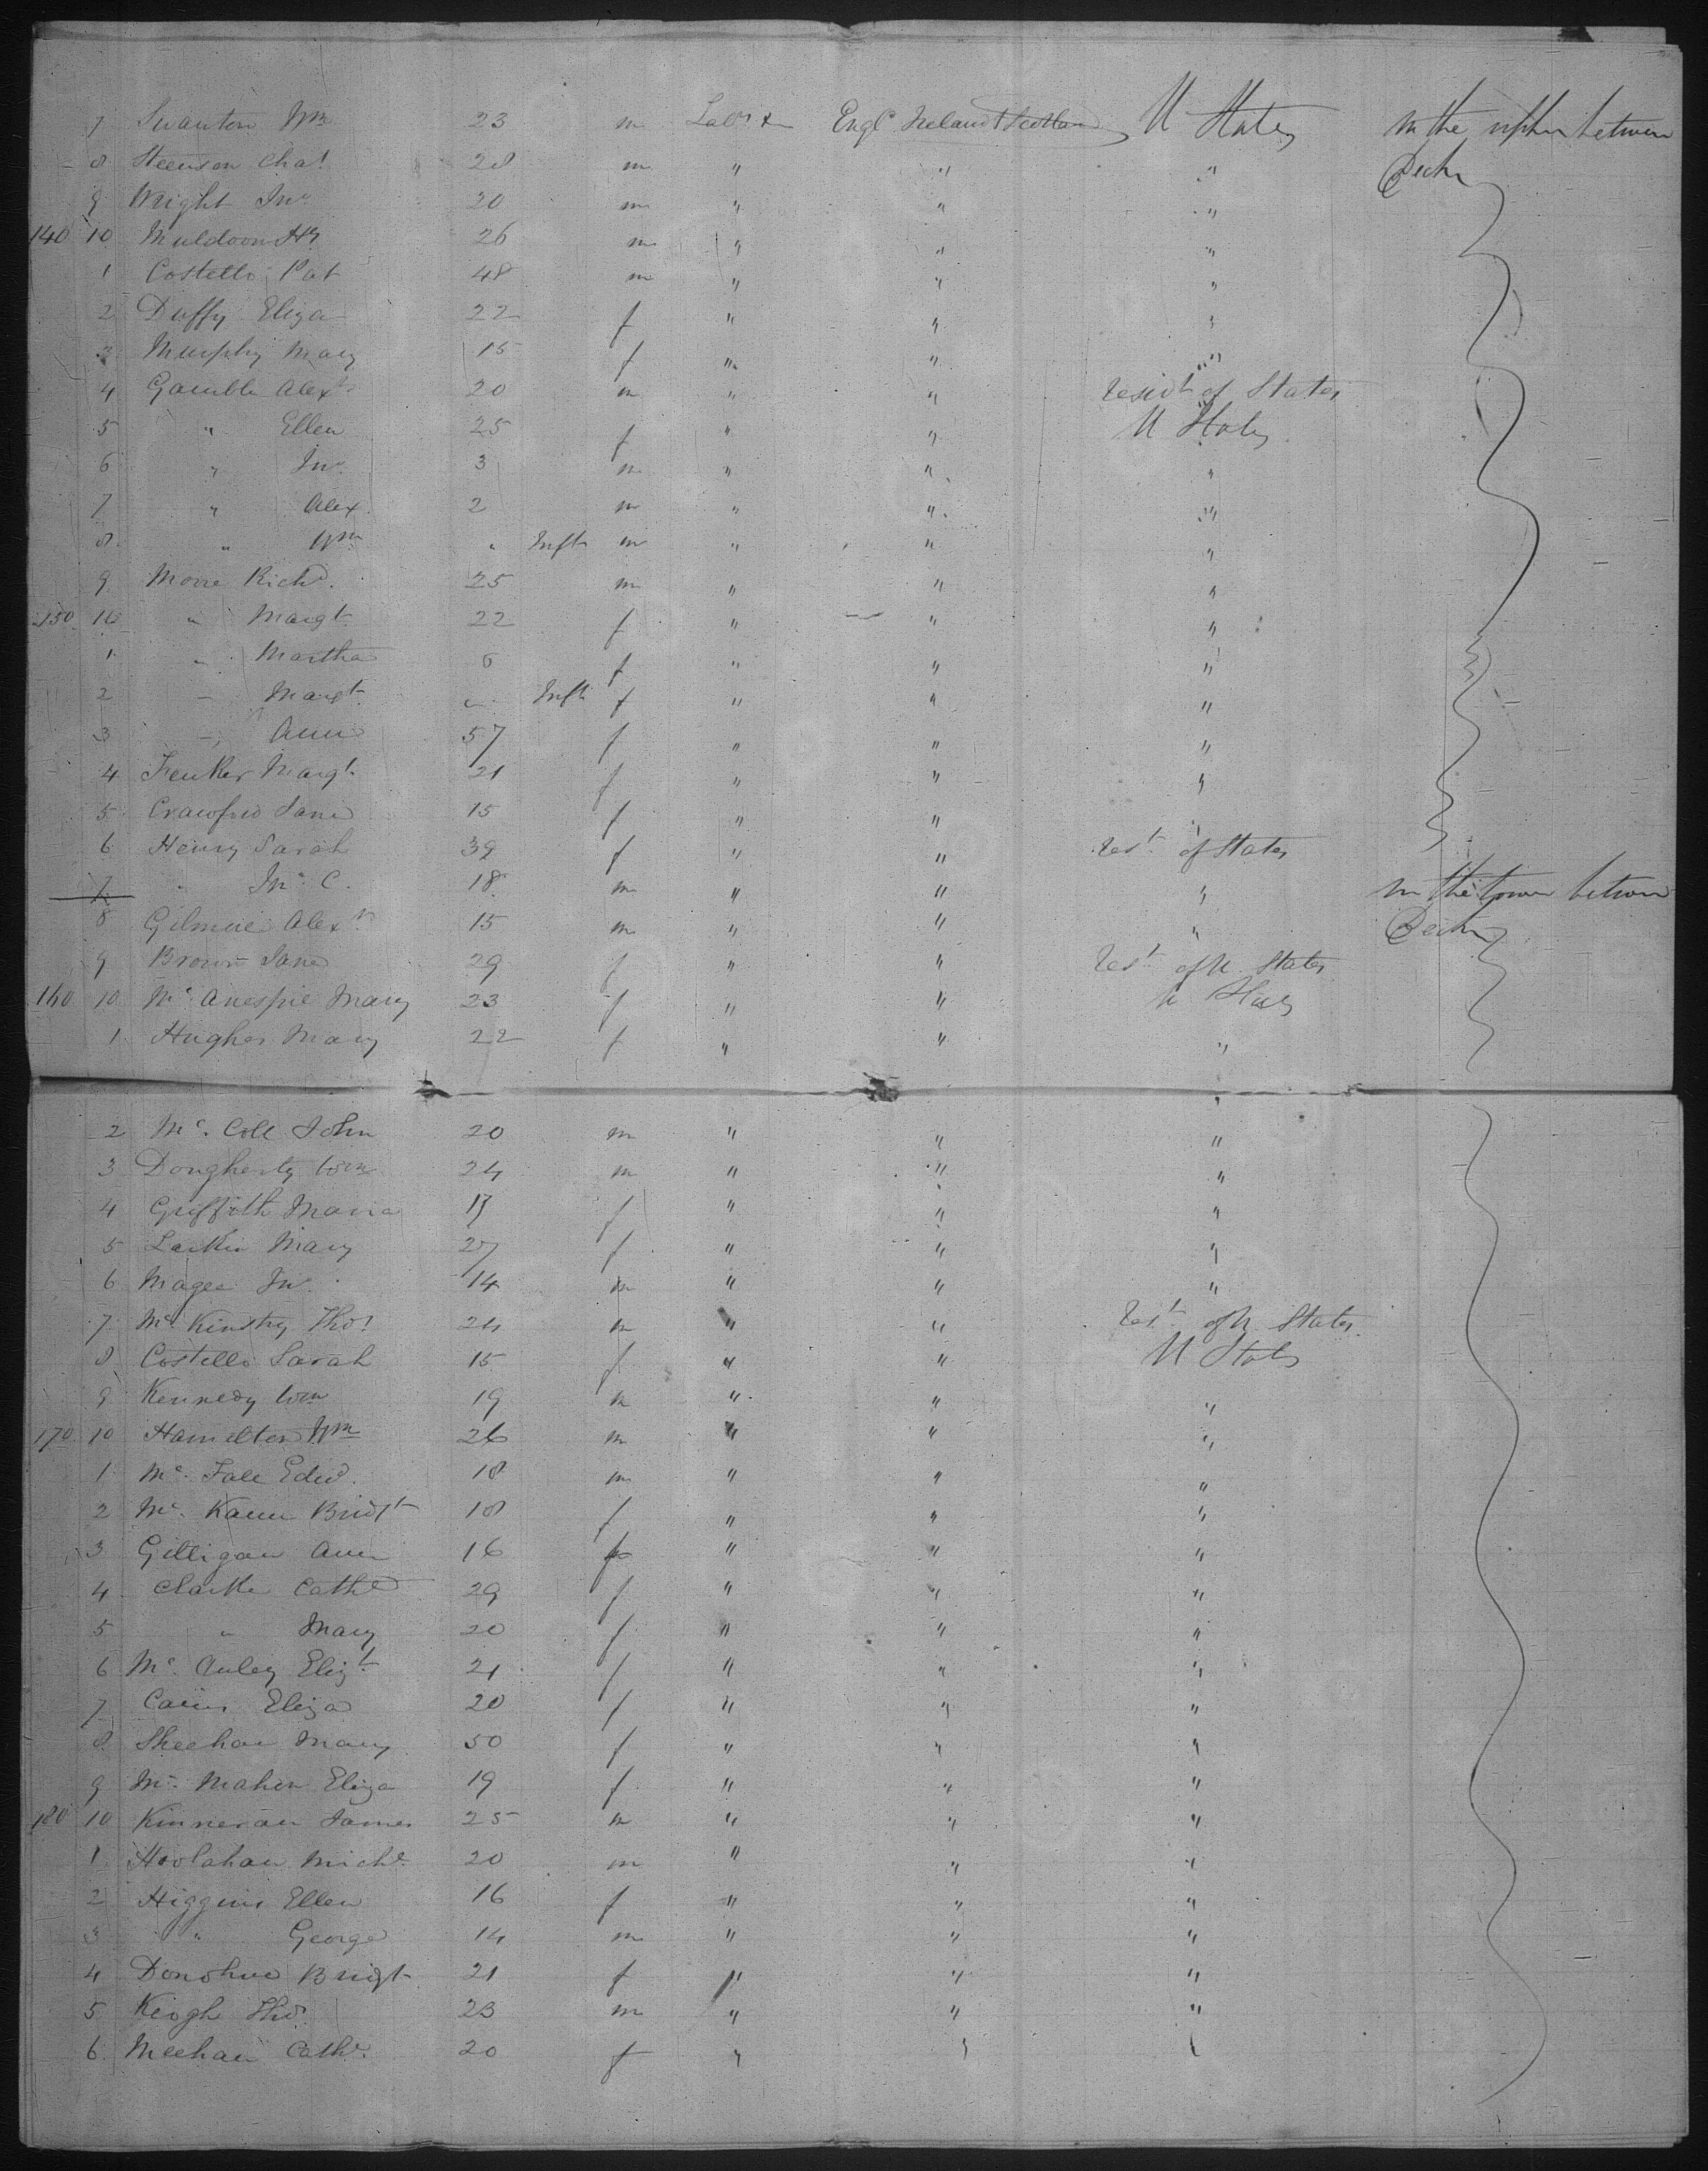 7 Swanton Wm 23 m Labr &c Engd Ireland & Scotland U States In the upper between
8 Steenson Chas 28 m " " " Decks
9 Wright Jno 20 m " " "
140 10 Muldoon Hy 26 m " " "
1 Costello Pat 48 m " " "
2 Duffy Eliza 22 f " " "
3 Murphy Mary 15 f " " "
4 Gamble Alexr 20 m " " residt of States
5 " Ellen 25 f " " U States
6 " Jno 3 m " " "
7 " Alex 2 m " " "
8 " Wm " Inft m " " "
9 Moore Richd. 25 m " " "
150 10 " Margt 22 f " " "
1 " Martha 6 f " " "
2 " Margt " Inft f " " "
3 " Ann 57 f " " "
4 Margt 21 f " " "
5 Crawford Jane 15 f " " "
6 Henry Sarah 39 f " " rest of States
7 " Jno C. 18 m " " " In the lower between
8 Gilmore Alexr 15 m " " " Decks
9 Brown Jane 29 f " " rest of U States
160 10 Mc Anespie Mary 23 f " " U States
1 Hughes Mary 22 f " " "
2 Mc Coll John 20 m " " "
3 Dougherty Wm 24 m " " "
4 Griffith Maria 17 f " " "
5 Larkin Mary 27 f " " "
6 Magee Jno 14 m " " "
7 Mc Kinstry Thos 24 m " " rest of U States
8 Costello Sarah 15 f " " U States
9 Kennedy Wm 19 m " " "
170 10 Hamilton Wm 26 m " " "
1 Mc Edwd. 18 m " " "
2 Mc Kann Bridgt 18 f " " "
3 Gilligan Ann 16 f " " "
4 Clarke Cathe 29 f " " "
5 " Mary 20 f " " "
6 Mc Auley Elizt 21 f " " "
7 Cairns Eliza 20 f " " "
8 Sheehan Mary 50 f " " "
9 Mc Mahon Eliza 19 f " " "
180 10 Kinneran James 25 m " " "
1 Hoolahan Michl 20 m " " "
2 Higgins Ellen 16 f " " "
3 " George 14 m " " "
4 Donohue Bridgt 21 f " " "
5 Keogh Thos 23 m " " "
6 Meehan Cathe 20 f " " "